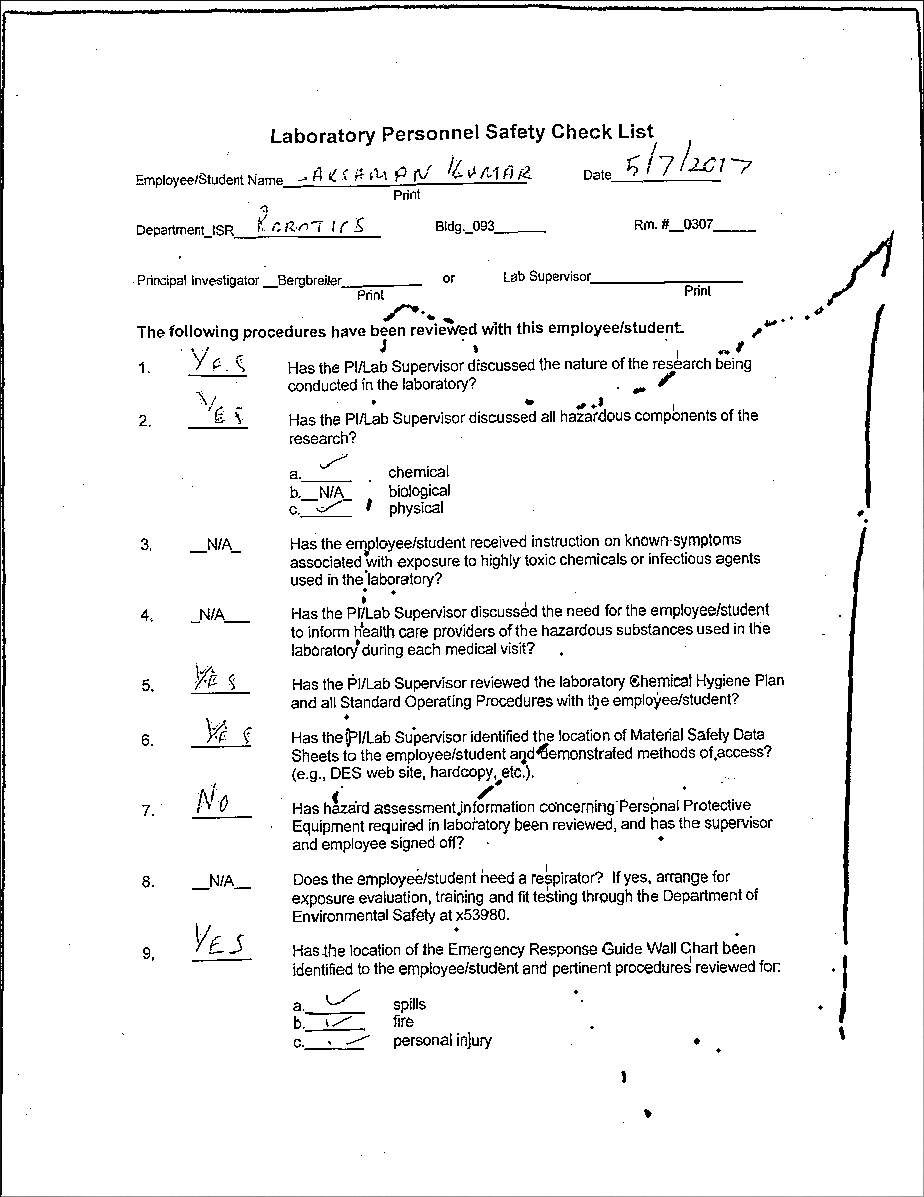 Laboratory Personnel Safety Check List
Employee/Student Name KUMAR Date 5/7/2017
Print
Department_ISR ROBOTICS Bldg._093 Rm. #__0307
Principal Investigator __Bergbreiter or Lab Supervisor
Print Print
The following procedures have been reviewed with this employee/student.
1. YES Has the PI/Lab Supervisor discussed the nature of the research being
conducted in the laboratory?
2. YES Has the PI/Lab Supervisor discussed all hazardous components of the
research?
a. ✓ chemical
b.__N/A_ biological
c. ✓ physical
3. __N/A_ Has the employee/student received instruction on known symptoms
associated with exposure to highly toxic chemicals or infectious agents
used in the laboratory?
4. _N/A__ Has the PI/Lab Supervisor discussed the need for the employee/student
to inform health care providers of the hazardous substances used in the
laboratory during each medical visit?
5. YES Has the PI/Lab Supervisor reviewed the laboratory Chemical Hygiene Plan
and all Standard Operating Procedures with the employee/student?
6. YES Has the PI/Lab Supervisor identified the location of Material Safety Data
Sheets to the employee/student and demonstrated methods of access?
(e.g., DES web site, hardcopy, etc.).
7. NO Has hazard assessment information concerning Personal Protective
Equipment required in laboratory been reviewed, and has the supervisor
and employee signed off?
8. __N/A__ Does the employee/student need a respirator? If yes, arrange for
exposure evaluation, training and fit testing through the Department of
Environmental Safety at x53980.
9. YES Has the location of the Emergency Response Guide Wall Chart been
identified to the employee/student and pertinent procedures reviewed for:
a. ✓ spills
b. ✓ fire
c. ✓ personal injury